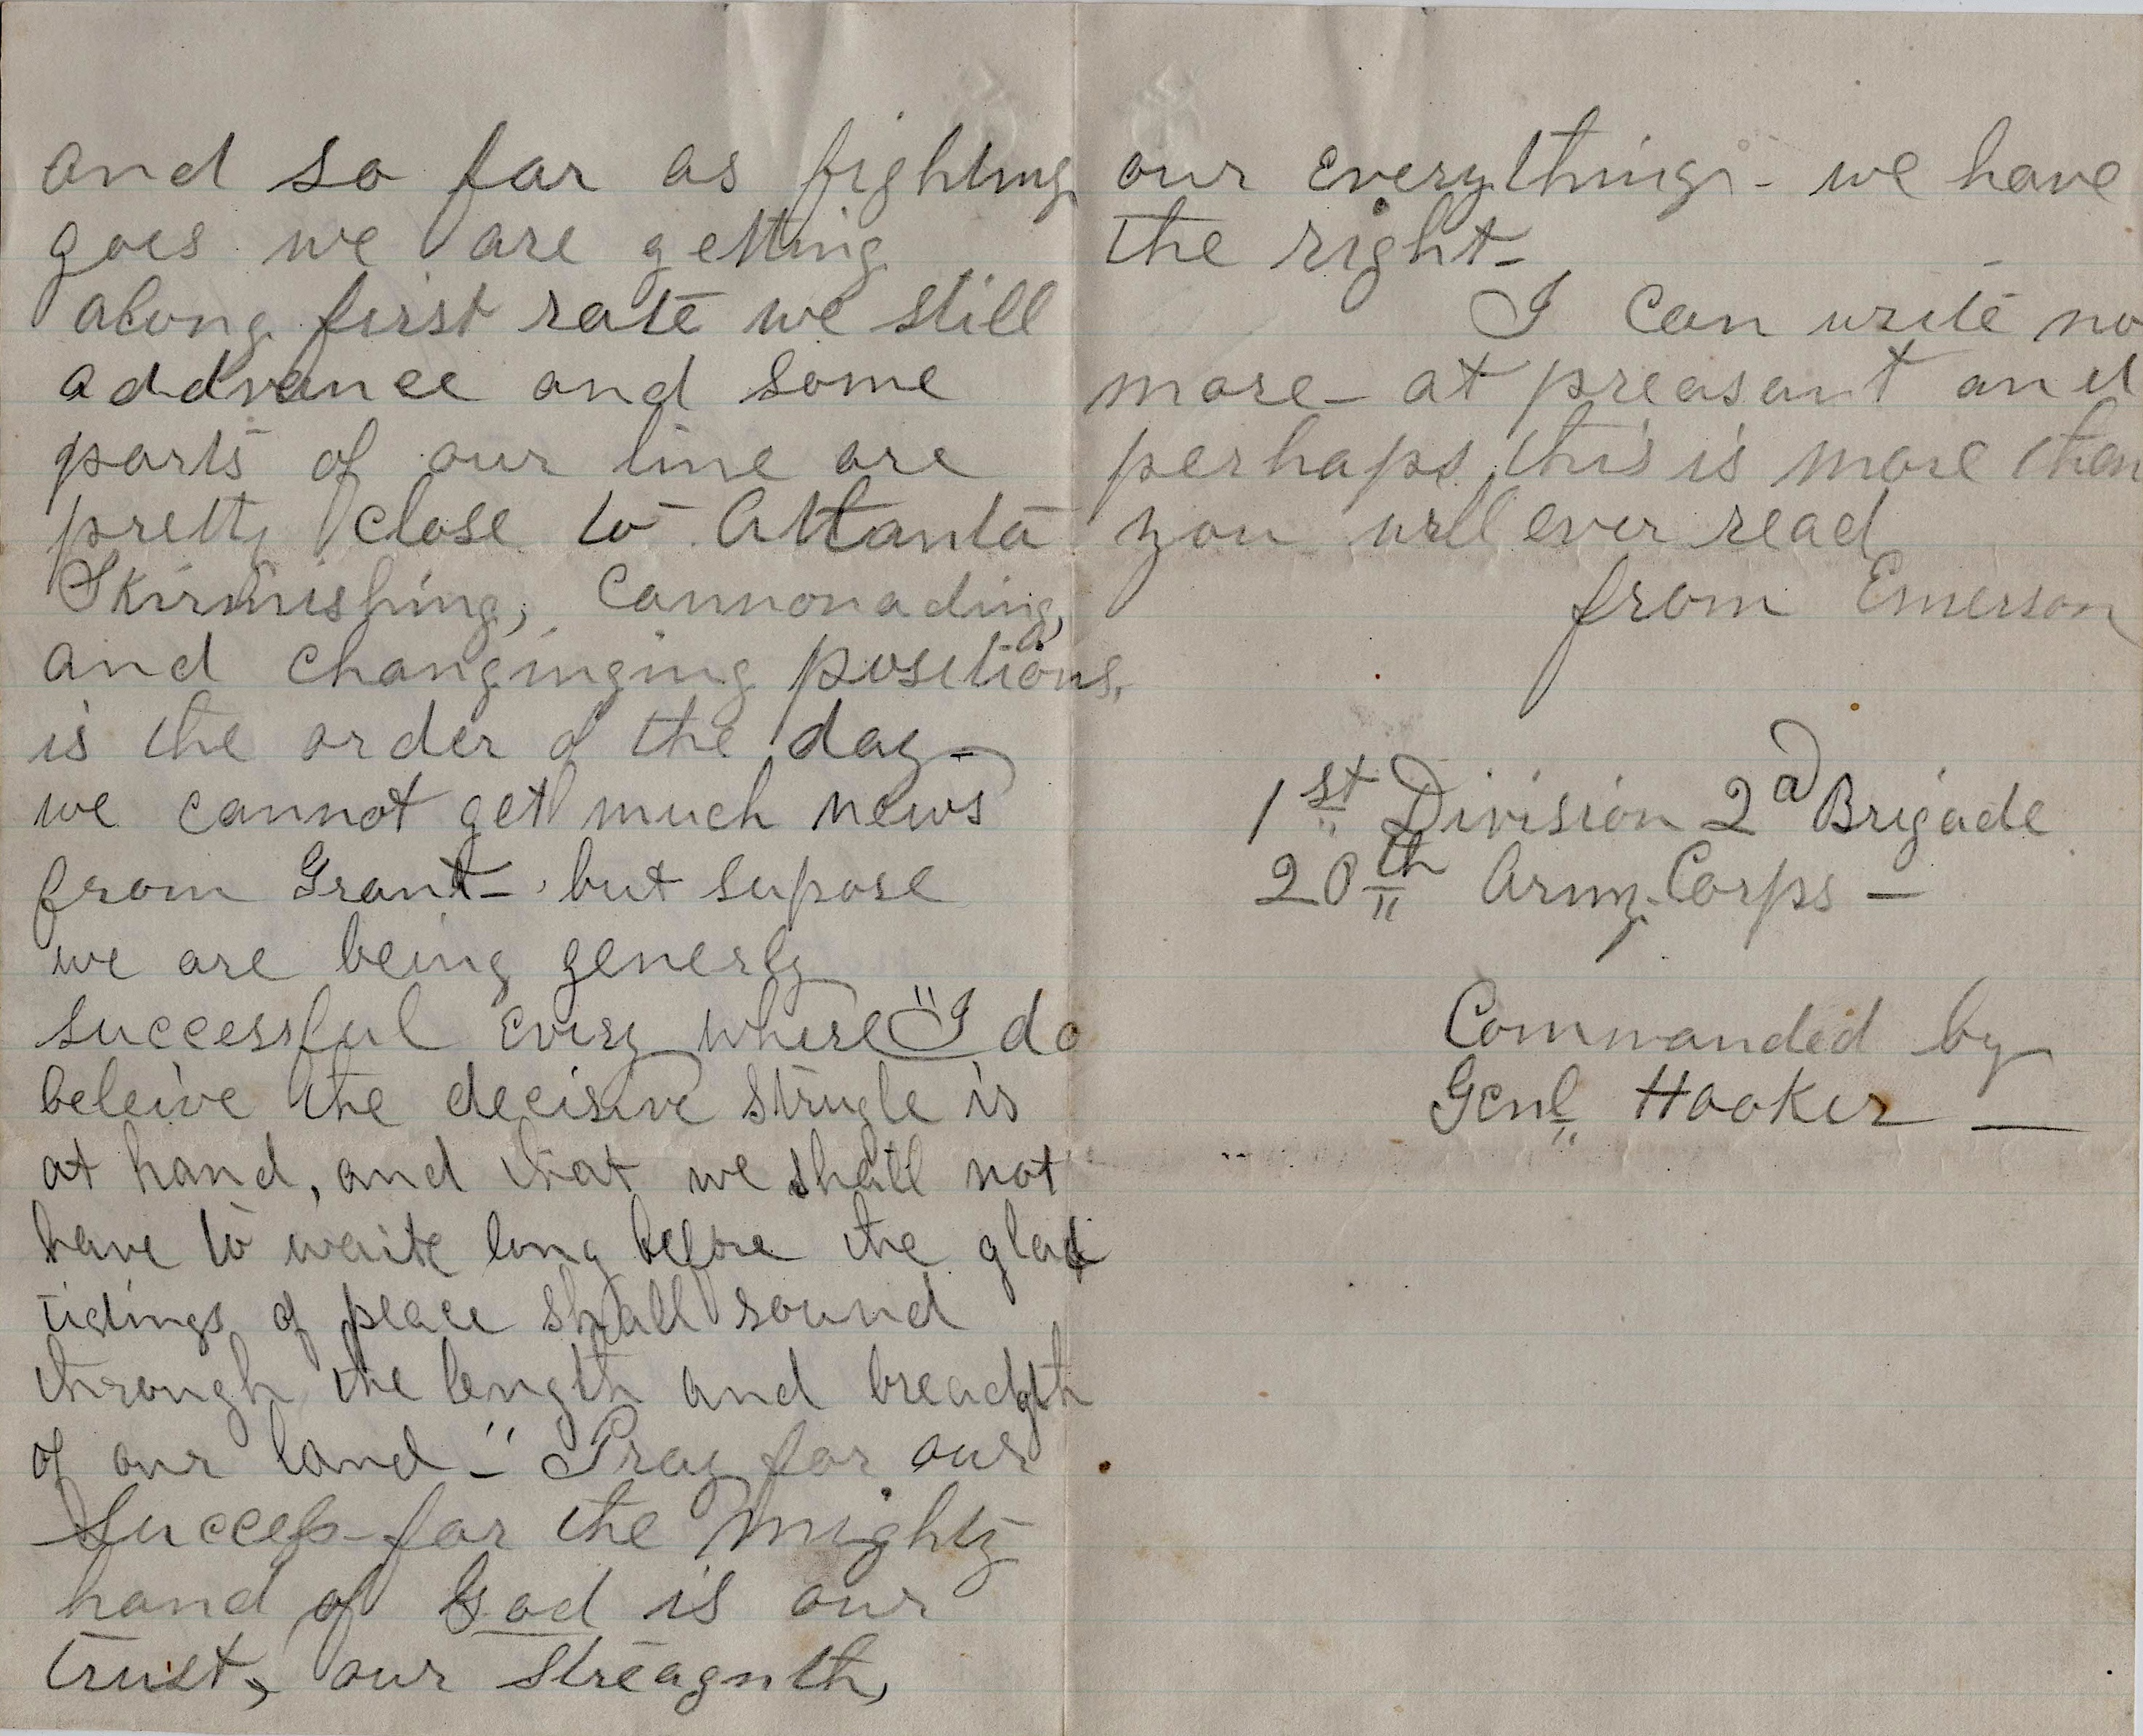 and so far as fighting
goes we are getting
along first rate we still
addvance and some
parts of our line are
pretty close to Attanta
Skirmishing, Cannonading,
and changinging positions,
is the order of the day -
we cannot get much news
from Grant - but supose
we are being generly
successful every where " I do
beleive the decisive strugle is
at hand, and that we shall not
have to waite long before the glad
tidings of peace shall sound
through the length and breadgth
of our land - " Pray for our
Success - for the mighty
hand of God is our
trust, our streagnth,
our everything - we have
the right -
I can write no
more - at preasant and
perhaps this is more than
you will ever read
from Emerson
1st Division 2d Brigade
20th Army Corps -
Commanded by
Genl Hooker -